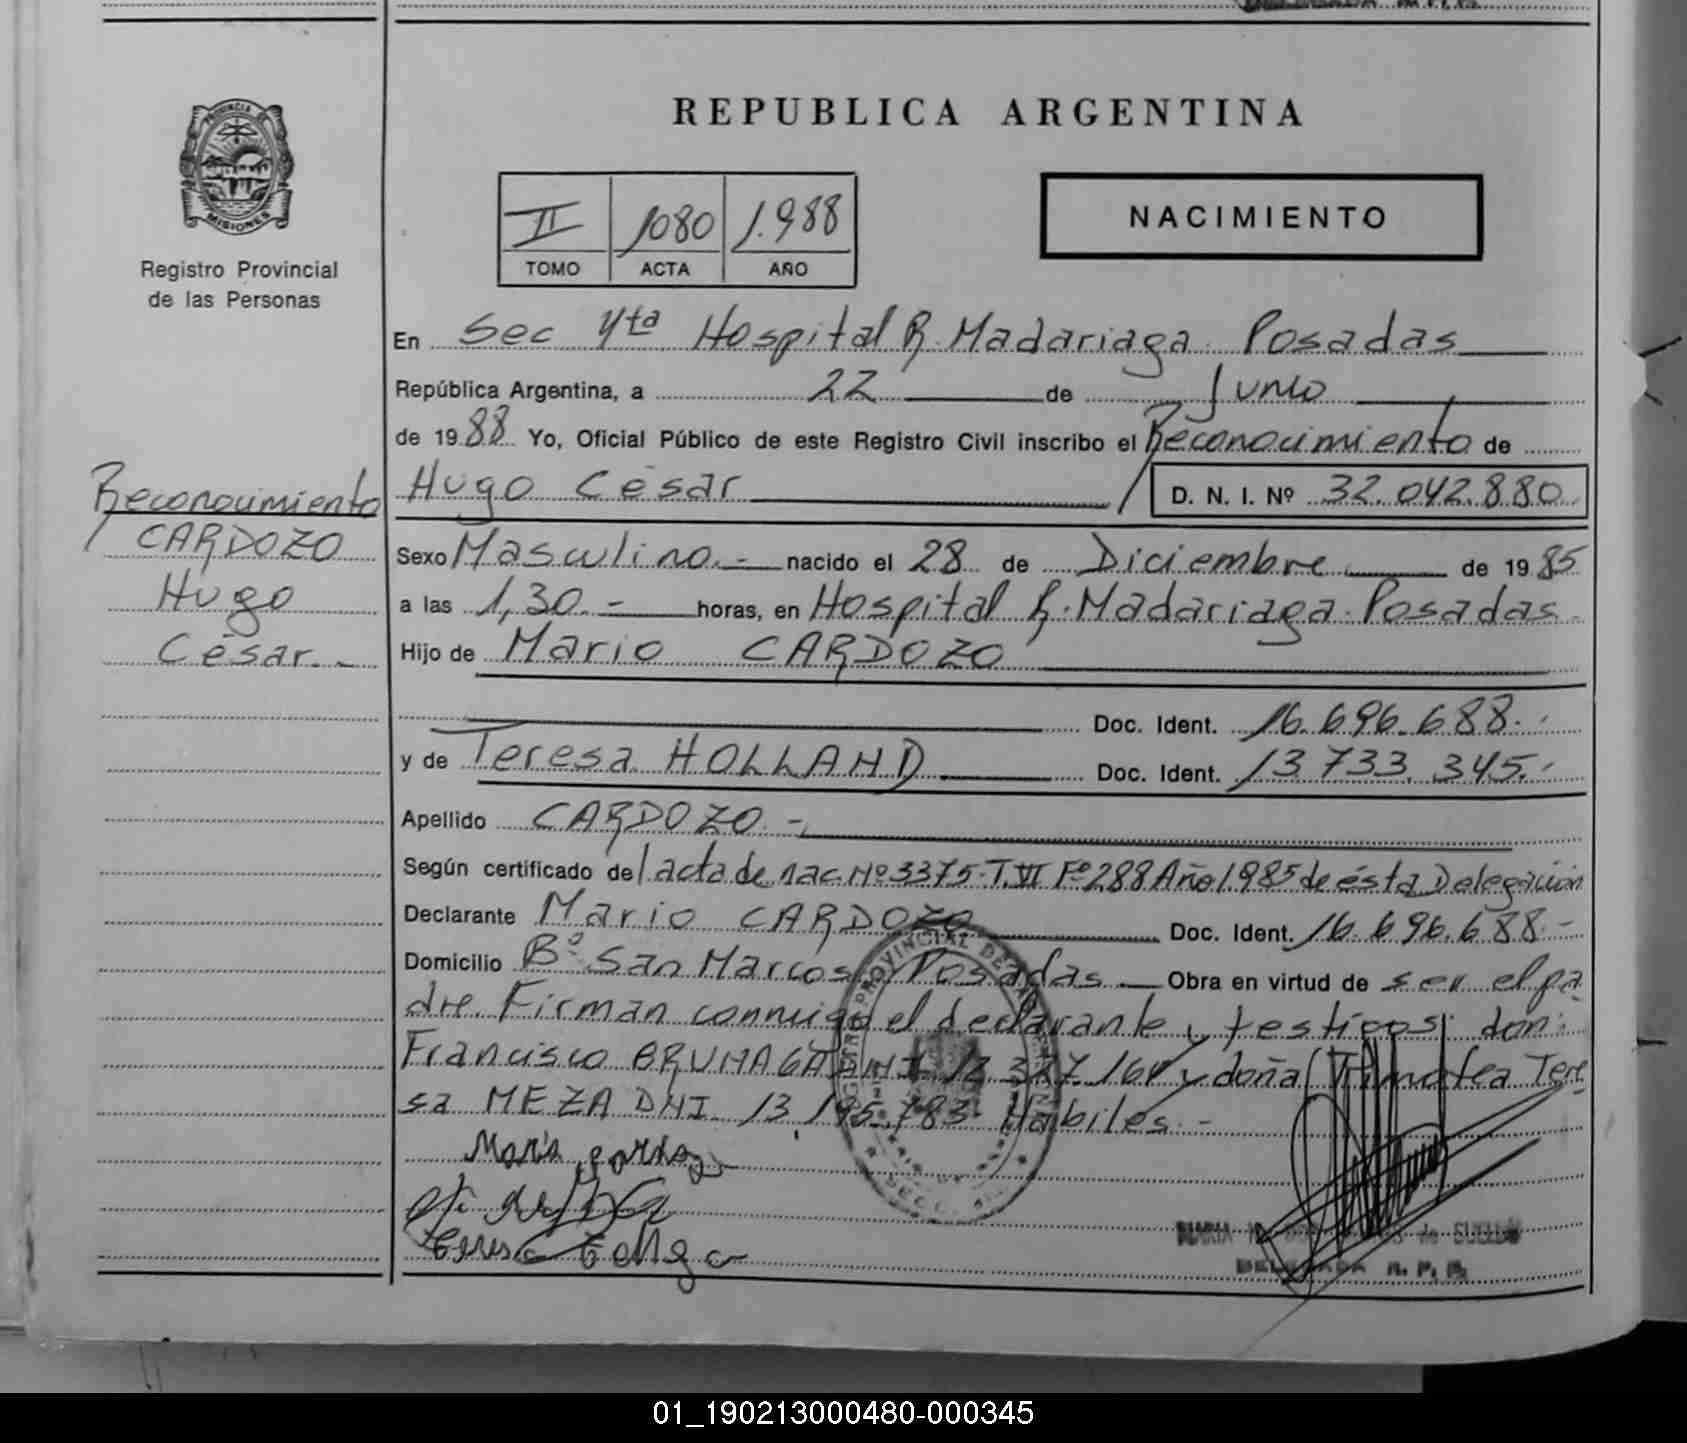 REPUBLICA ARGENTINA
PROVINCIA DE
MISIONES
Registro Provincial
de las Personas
II 1080 1.988
TOMO ACTA AÑO
NACIMIENTO
En Sec 4ta Hospital R. Madariaga. Posadas
República Argentina, a 22 de Junio
de 1988 Yo, Oficial Público de este Registro Civil inscribo el Reconocimiento de
Hugo César D. N. I. Nº 32.042.880
Reconocimiento
CARDOZO
Hugo
César.-
Sexo Masculino.- nacido el 28 de Diciembre de 1985
a las 1,30.- horas, en Hospital R. Madariaga. Posadas.
Hijo de Mario CARDOZO
Doc. Ident. 16.696.688.-
y de Teresa HOLLAND Doc. Ident. 13.733.345.-
Apellido CARDOZO.-
Según certificado del acta de nac. Nº 3375-T.VI Fº 288 Año 1.985 de ésta Delegación
Declarante Mario CARDOZO Doc. Ident. 16.696.688.-
Domicilio Bº San Marcos Posadas Obra en virtud de ser el pa
dre. Firman conmigo el declarante, testigos: don:
Francisco 12.327.164 y doña Tere
sa MEZA DNI 13.195.783 Habiles.-
DELEGADA R. P. P.
01_190213000480-000345